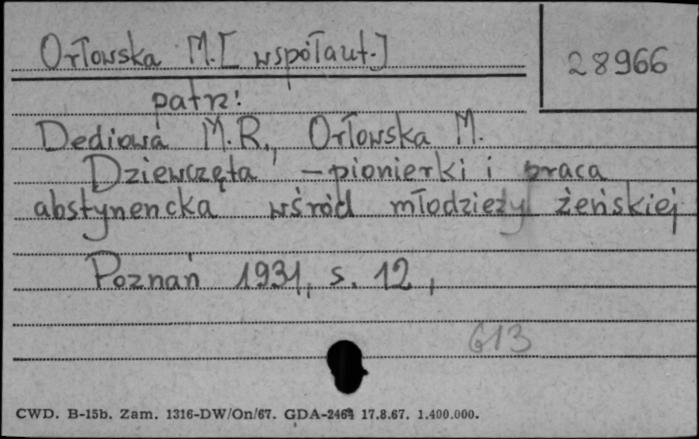 Orłowska M. [współaut.]
28966
patrz:
Dediowa M.R., Orłowska M.
Dziewczęta – pionierki i praca
abstynencka wśród młodzieży żeńskiej
Poznań 1931, s. 12,
613
CWD. B-15b. Zam. 1316-DW/On/67. GDA-2464 17.8.67. 1.400.000.